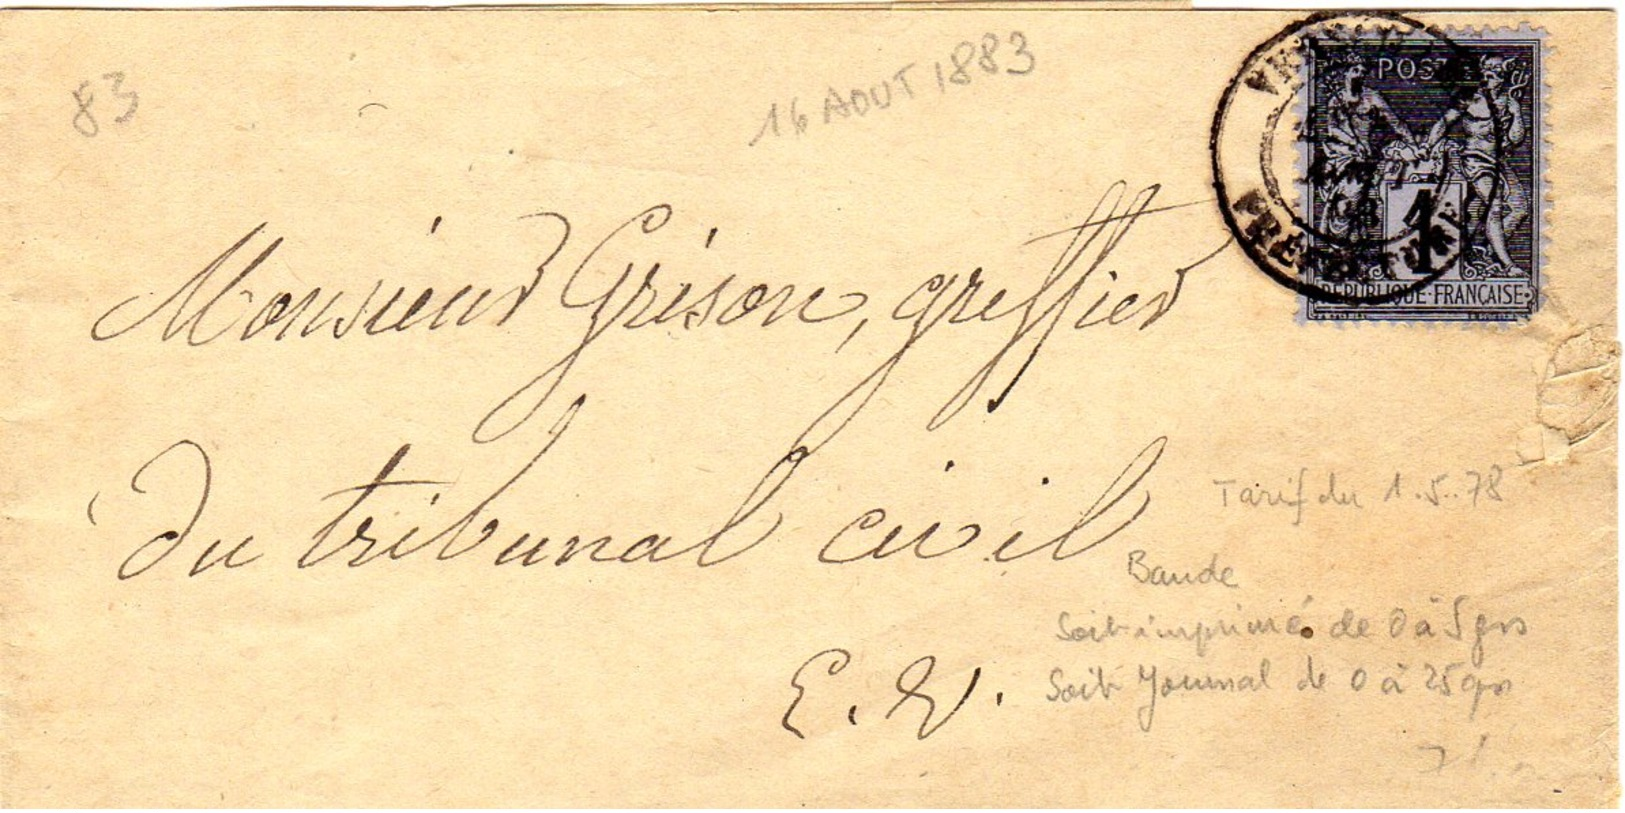 83
16 AOUT 1883
POSTE
1
REPUBLIQUE·FRANÇAISE
PREFECTURE
Monsieur Grison, greffier
du tribunal civil
E. V.
Tarif du 1.5.78
Bande
Soit imprimé de 0 à 5 grs
Soit Journal de 0 à 25 grs